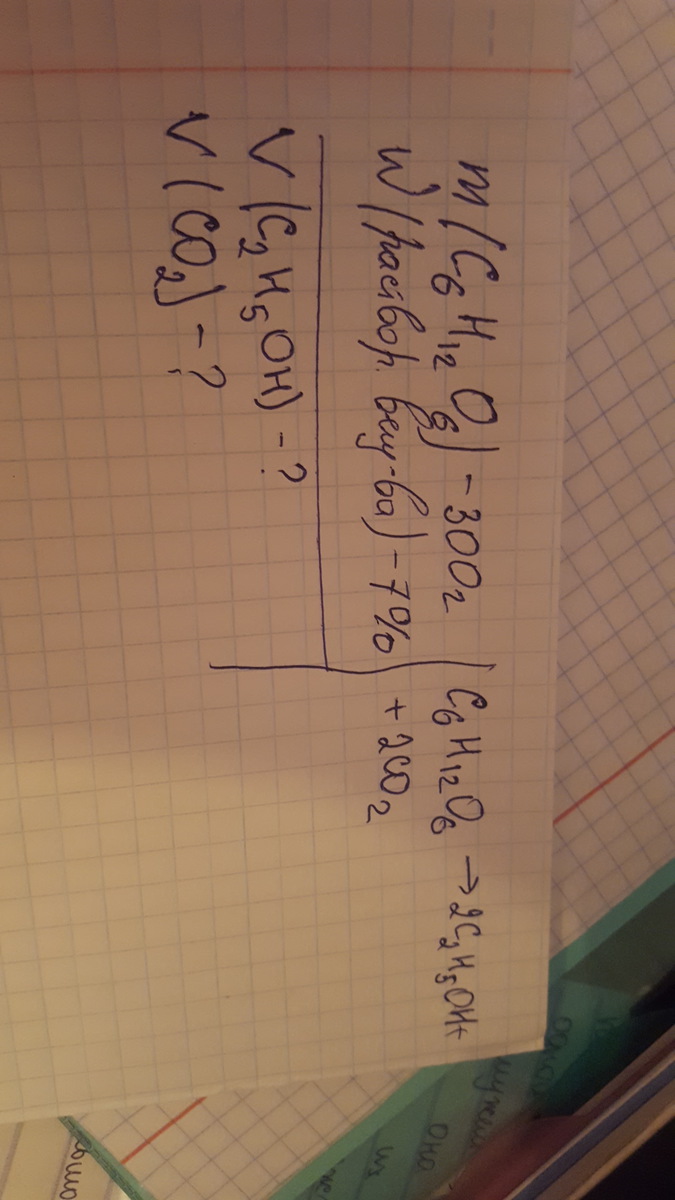 m(C₆H₁₂O₆) - 300г
W(раствор. вещ-ва) - 7%
V(C₂H₅OH) - ?
V(CO₂) - ?
C₆H₁₂O₆ → 2C₂H₅OH+
+ 2CO₂
оно
из